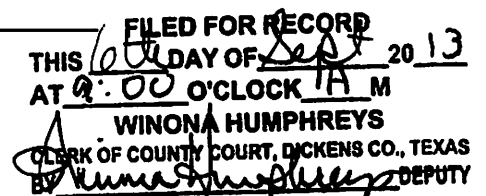 FILED FOR RECORD
THIS 6th DAY OF Sept 20 13
AT 9:00 O'CLOCK A M
WINONA HUMPHREYS
CLERK OF COUNTY COURT, DICKENS CO., TEXAS
BY Winona Humphreys DEPUTY